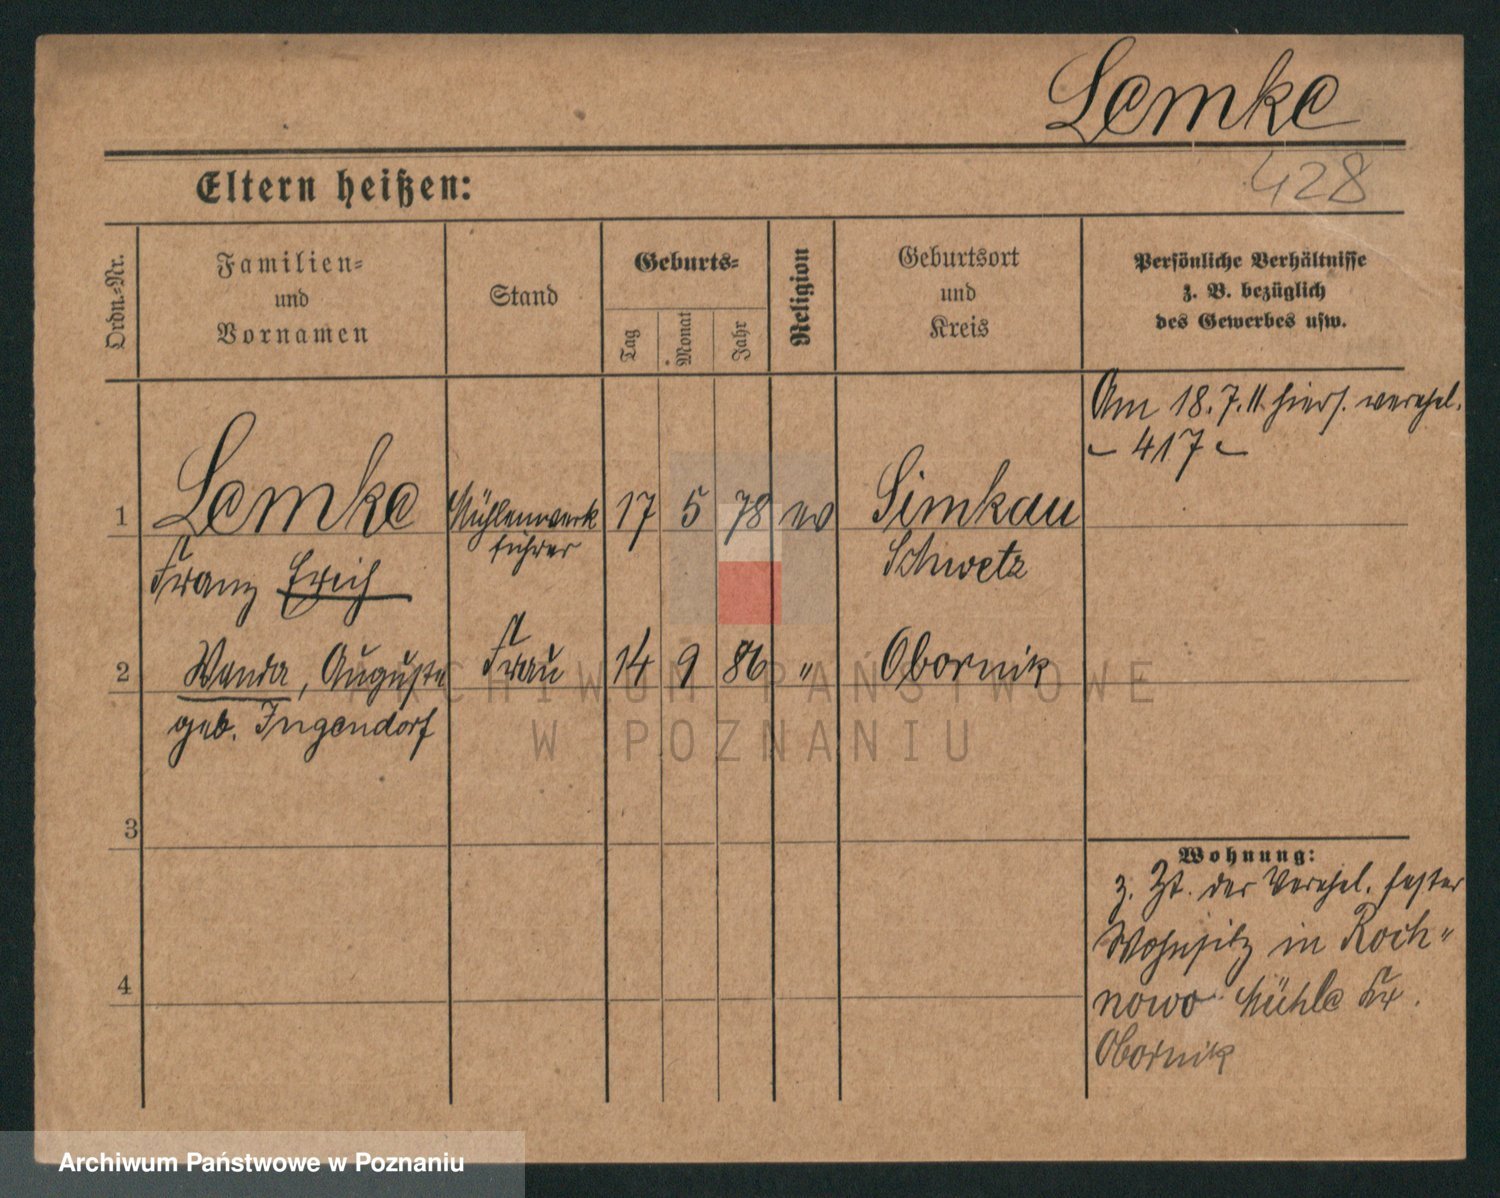 Lemke
428
Eltern heißen:
Ordn.-Nr.
Familien-
und
Vornamen
Stand
Geburts-
Tag
Monat
Jahr
Religion
Geburtsort
und
Kreis
Persönliche Verhältnisse
z. B. bezüglich
des Gewerbes usw.
Am 18.7.11 hiers. verehel.
- 417 -
1 Lemke Mühlenwerk 17 5 78 ev Simkau
führer Schwetz
Franz Erich
2 Wanda, Auguste Frau 14 9 86 " Obornik
geb. Ingendorf
3
4
Wohnung:
z. Zt. der Verehel. fester
Wohnsitz in Roch-
nowo Mühle Kr.
Obornik
ARCHIWUM PAŃSTWOWE
W POZNANIU
Archiwum Państwowe w Poznaniu